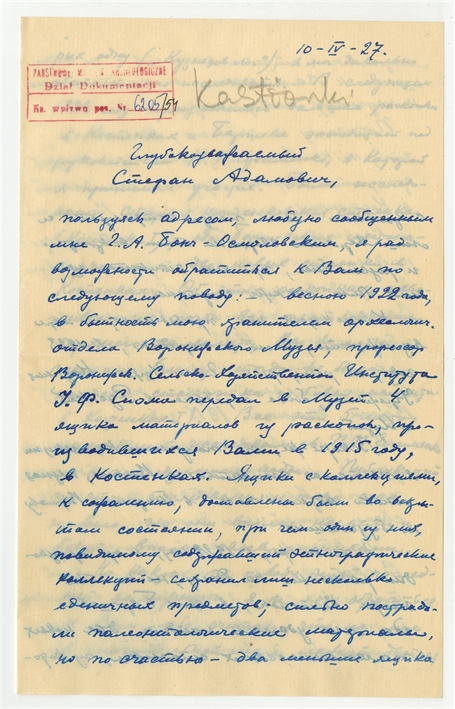 10-IV-27.
PAŃSTWOWE M ARCHEOLOGICZNE
Dział Dokumentacji
Ks. wpływu poz. Nr. 6205/54
Kostionki
Глубокоуважаемый
Стефан Адамович,
пользуясь адресом, любезно сообщенным
мне Г.А. Бонч-Осмоловским, я рад
возможности обратиться к Вам по
следующему поводу: весною 1922 года,
в бытность мою хранителем археологич.
отдела Воронежского Музея, профессор
Воронежск. Сельско-Хозяйственного Института
передал в Музей 4
ящика материалов из раскопок, про-
изводившихся Вами в 1915 году,
в Костенках. Ящики с коллекциями,
к сожалению, доставлены были во
состоянии, при чем один из них,
повидимому содержавший этнографические
коллекции – сохранил лишь несколько
единичных предметов, сильно пострада-
ли палеонтологические материалы,
но по счастью – два меньших ящика